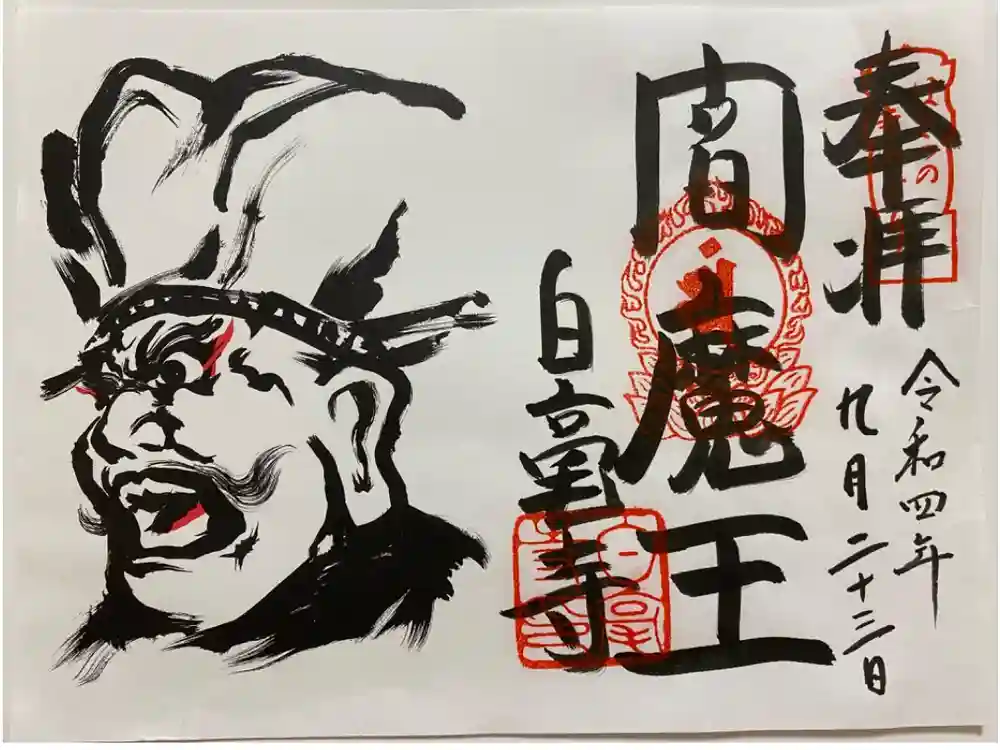 奉拝
令和四年
九月二十三日
閻魔王
白毫寺